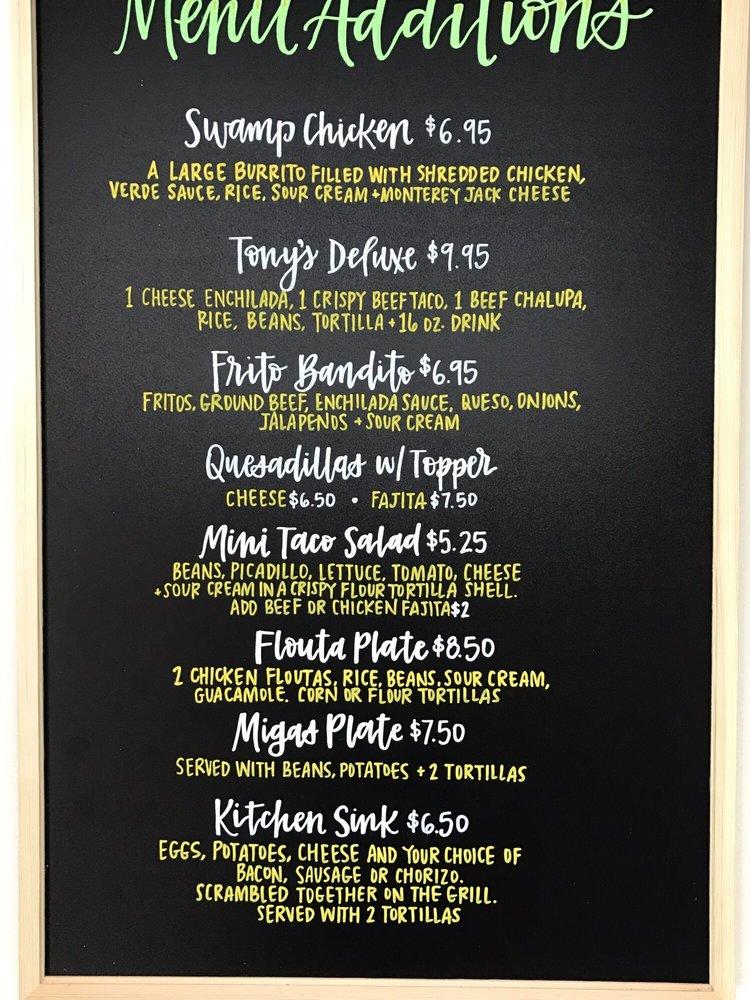 Menu Additions
Swamp Chicken $6.95
A LARGE BURRITO FILLED WITH SHREDDED CHICKEN,
VERDE SAUCE, RICE, SOUR CREAM + MONTEREY JACK CHEESE
Tony's Deluxe $9.95
1 CHEESE ENCHILADA, 1 CRISPY BEEF TACO, 1 BEEF CHALUPA,
RICE, BEANS, TORTILLA + 16 OZ. DRINK
Frito Bandito $6.95
FRITOS, GROUND BEEF, ENCHILADA SAUCE, QUESO, ONIONS,
JALAPENOS + SOUR CREAM
Quesadillas w/ Topper
CHEESE $6.50 • FAJITA $7.50
Mini Taco Salad $5.25
BEANS, PICADILLO, LETTUCE, TOMATO, CHEESE
+ SOUR CREAM IN A CRISPY FLOUR TORTILLA SHELL.
ADD BEEF OR CHICKEN FAJITA $2
Flouta Plate $8.50
2 CHICKEN FLOUTAS, RICE, BEANS, SOUR CREAM,
GUACAMOLE. CORN OR FLOUR TORTILLAS
Migas Plate $7.50
SERVED WITH BEANS, POTATOES + 2 TORTILLAS
Kitchen Sink $6.50
EGGS, POTATOES, CHEESE AND YOUR CHOICE OF
BACON, SAUSAGE OR CHORIZO.
SCRAMBLED TOGETHER ON THE GRILL.
SERVED WITH 2 TORTILLAS